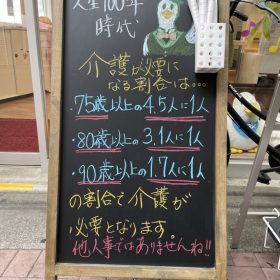 人生100年
時代
介護が必要に
なる割合は…
・75歳以上の4.5人に1人
・80歳以上の3.1人に1人
・90歳以上の1.7人に1人
の割合で介護が
必要となります。
他人事ではありませんね!!